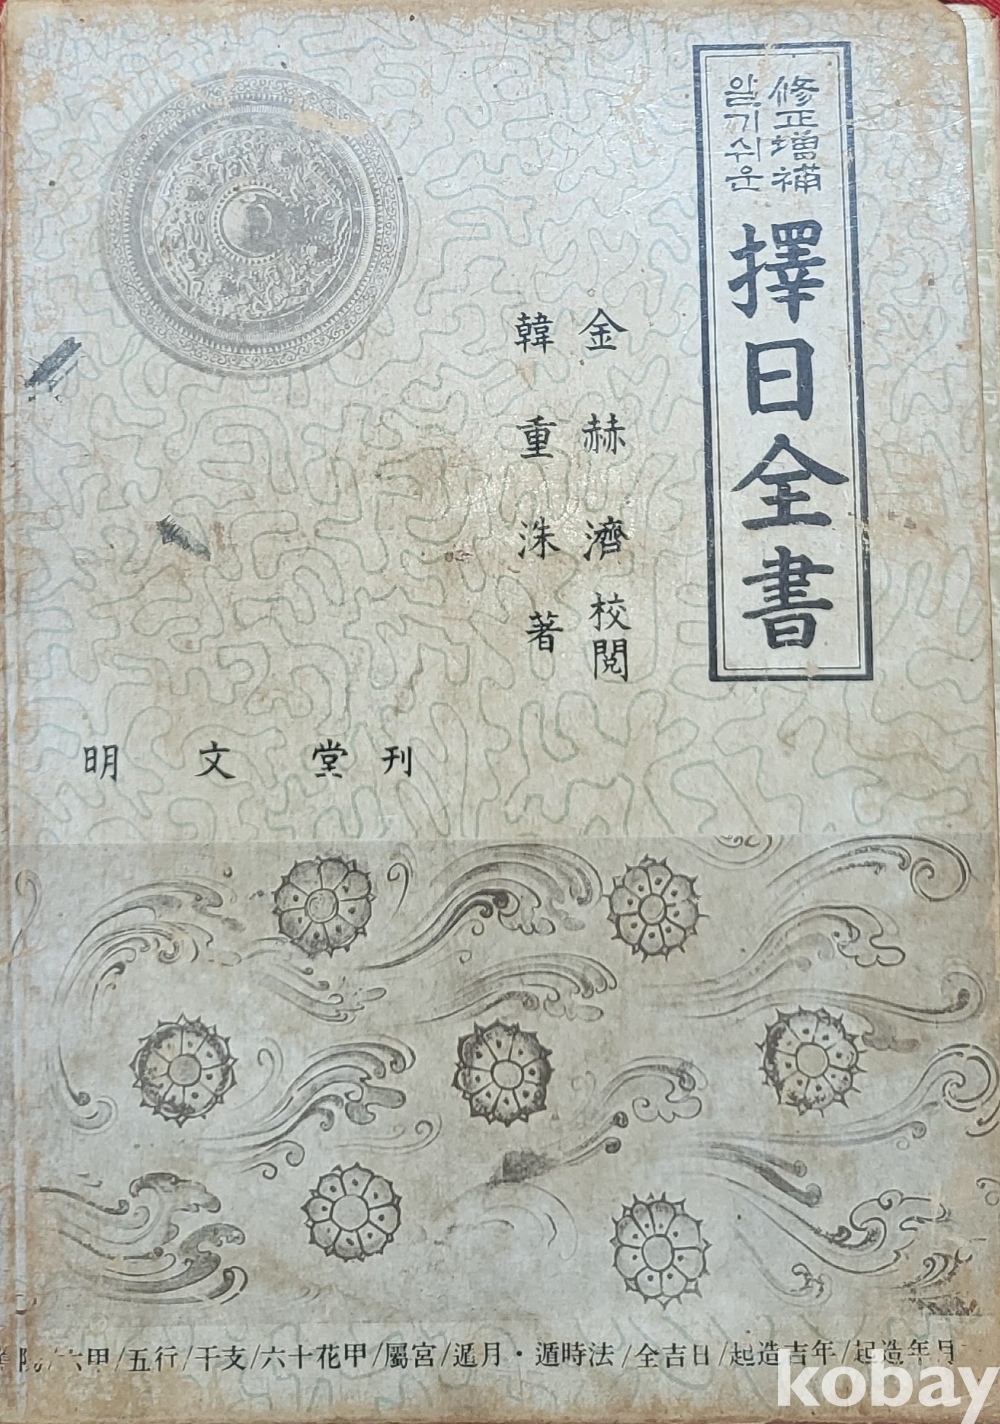 修正增補
알기쉬운
擇日全書
金赫濟 校閱
韓重洙 著
明文堂刊
六甲/五行/干支/六十花甲/屬宮/遁月·遁時法/全吉日/起造吉年/起造年月
kobay